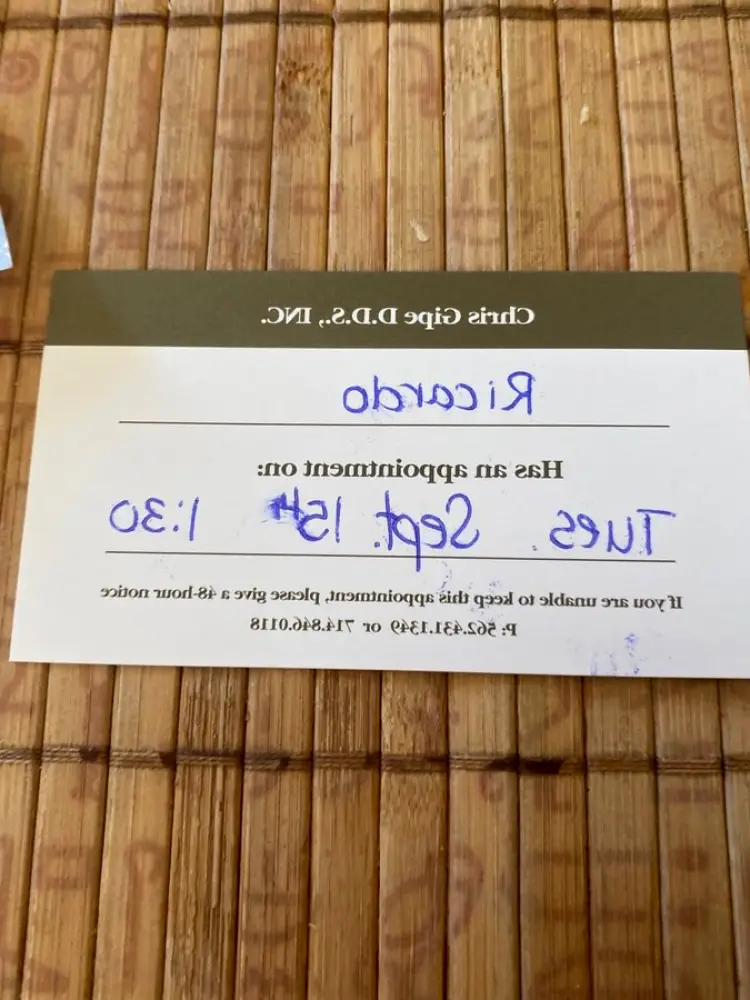 Chris Gipe D.D.S., INC.
Ricardo
Has an appointment on:
Tues. Sept. 15th 1:30
If you are unable to keep this appointment, please, give a 48-hour notice
P: 562.431.1349 or 714.846.0118